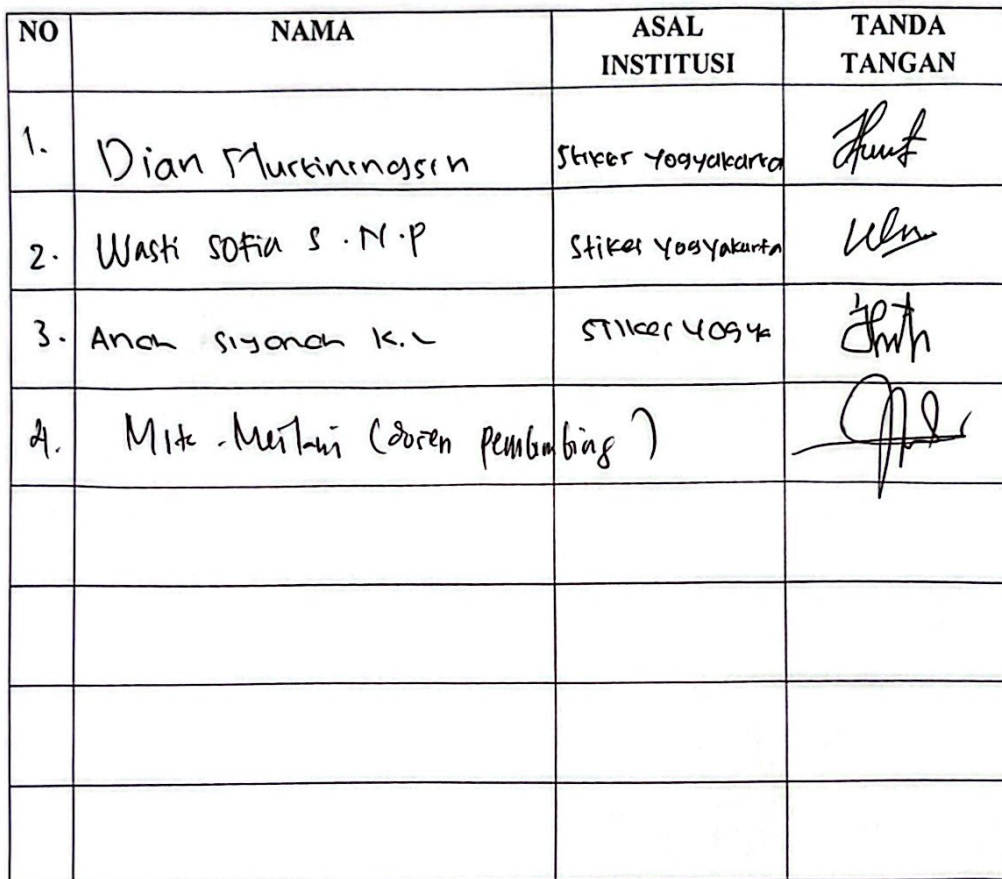 NO NAMA ASAL INSTITUSI TANDA TANGAN
1. Dian Murtiningsih Stikes Yogyakarta
2. Wasti Sofia S.N.P Stikes Yogyakarta
3. Anah Siyanah K.L STIkes Yogya
4. (dosen pembimbing)